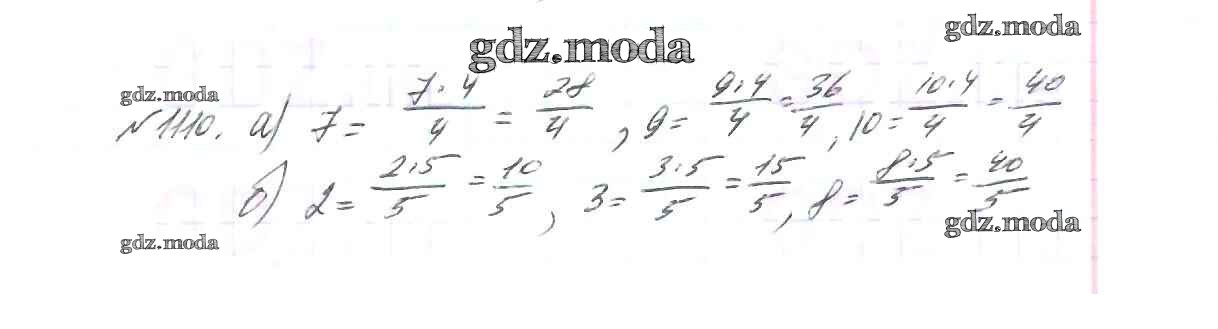 gdz.moda
gdz.moda
gdz.moda
№1110. а) 7 = 7·4/4 = 28/4, 9 = 9·4/4 = 36/4, 10 = 10·4/4 = 40/4
б) 2 = 2·5/5 = 10/5, 3 = 3·5/5 = 15/5, 8 = 8·5/5 = 40/5
gdz.moda
gdz.moda